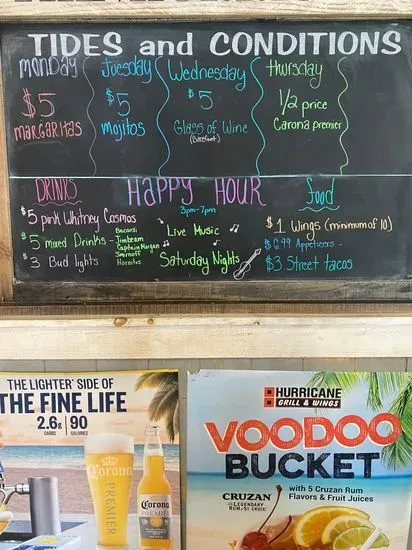 TIDES and CONDITIONS
Monday
$5
margaritas
Tuesday
$5
mojitos
Wednesday
$5
Glass of Wine
(Barefoot)
Thursday
1/2 price
Carona premier
DRINKS
$5 pink Whitney Cosmos
$5 mixed Drinks -
Bacardi
Jimbeam
Captain Morgan
Smirnoff
Hornitos
$3 Bud lights
Happy Hour
3pm-7pm
Live Music
Saturday Nights
food
$1 Wings (minimum of 10)
$6.99 Appetizers -
$3 Street tacos
THE LIGHTER SIDE OF
THE FINE LIFE
2.6g
CARBS
90
CALORIES
Corona
PREMIER
Corona
PREMIER
HURRICANE
GRILL & WINGS
VOODOO
BUCKET
CRUZAN
LEGENDARY
RUM of ST. CROIX
with 5 Cruzan Rum
Flavors & Fruit Juices